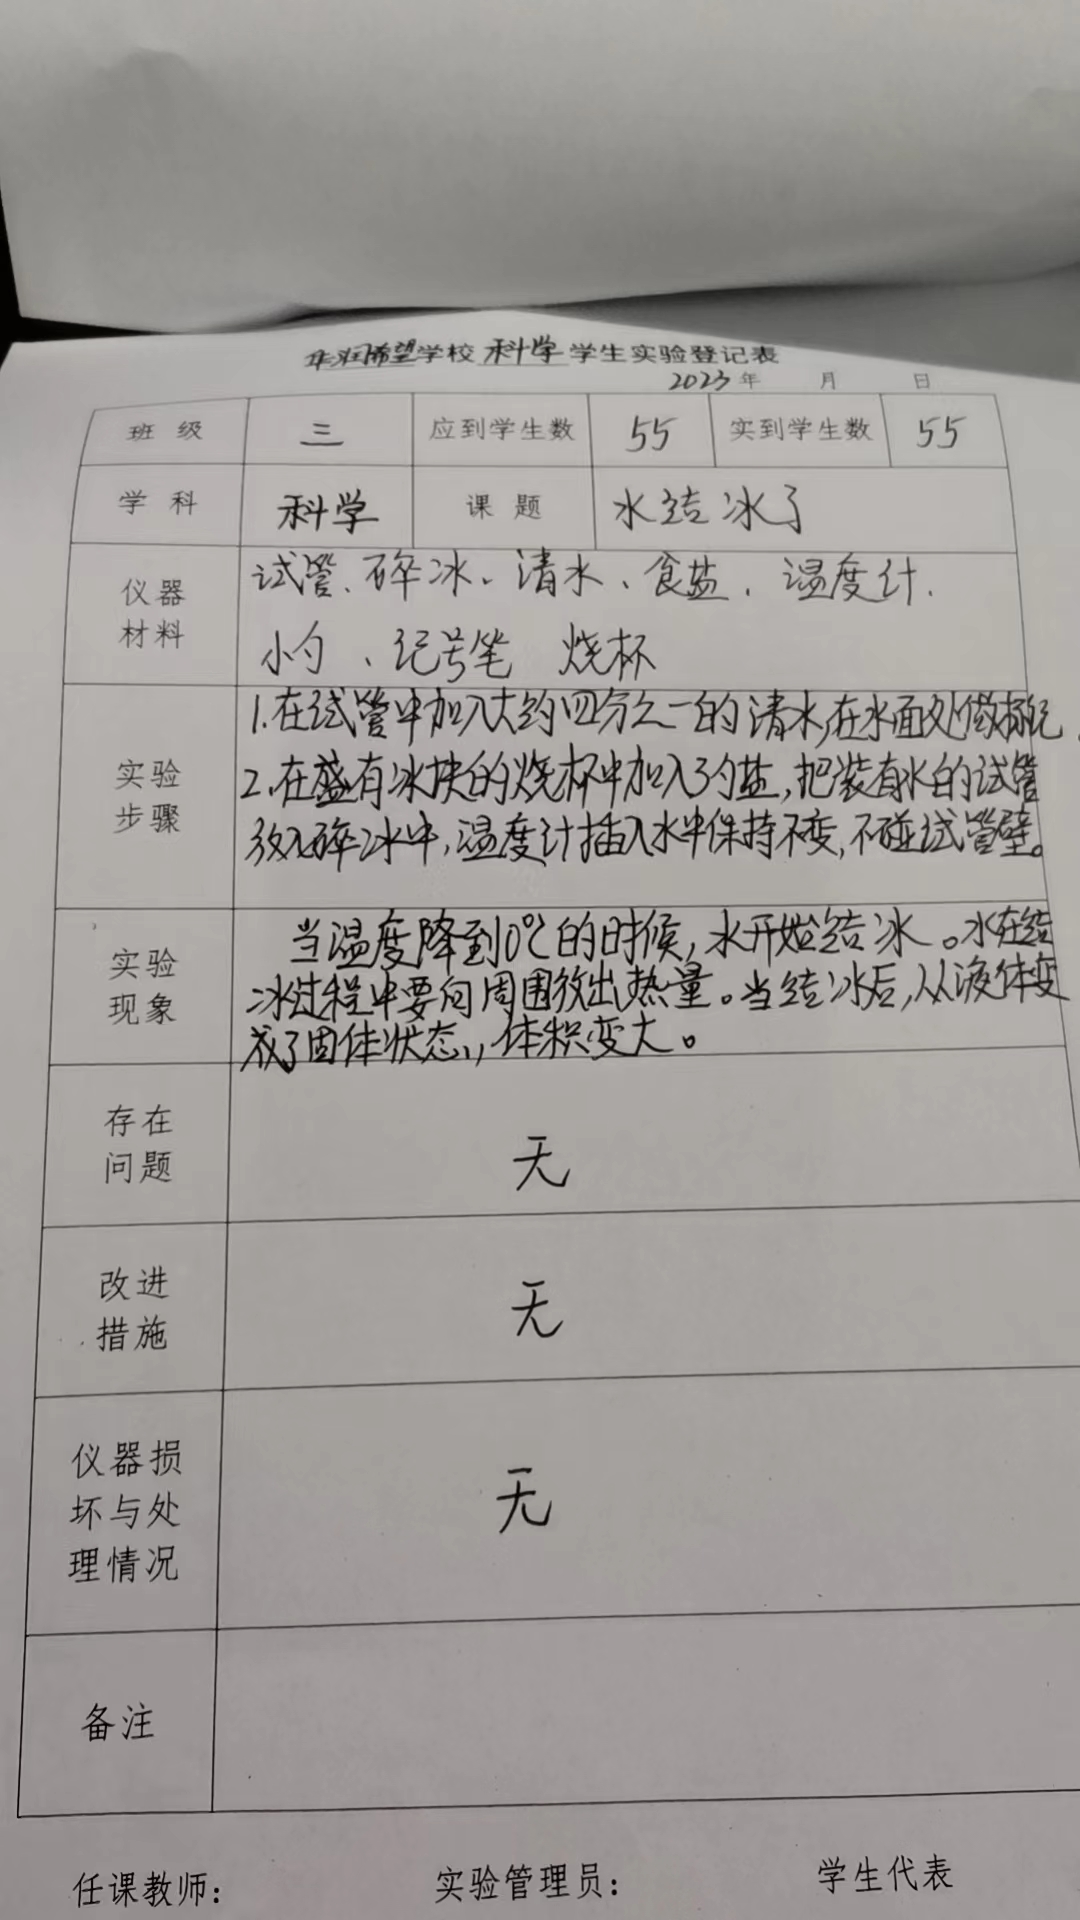 华润希望学校 科学 学生实验登记表
2023年 月 日
班级 三 应到学生数 55 实到学生数 55
学科 科学 课题 水结冰了
仪器材料
试管、碎冰、清水、食盐、温度计.
小勺、记号笔 烧杯
实验步骤
1.在试管中加入大约四分之一的清水,在水面处做标记.
2.在盛有冰块的烧杯中加入3勺盐,把装有水的试管
放入碎冰中,温度计插入水中保持不变,不碰试管壁。
实验现象
当温度降到0℃的时候,水开始结冰。水在结
冰过程中要向周围放出热量。当结冰后,从液体变
成了固体状态,体积变大。
存在问题
无
改进措施
无
仪器损坏与处理情况
无
备注
任课教师: 实验管理员: 学生代表